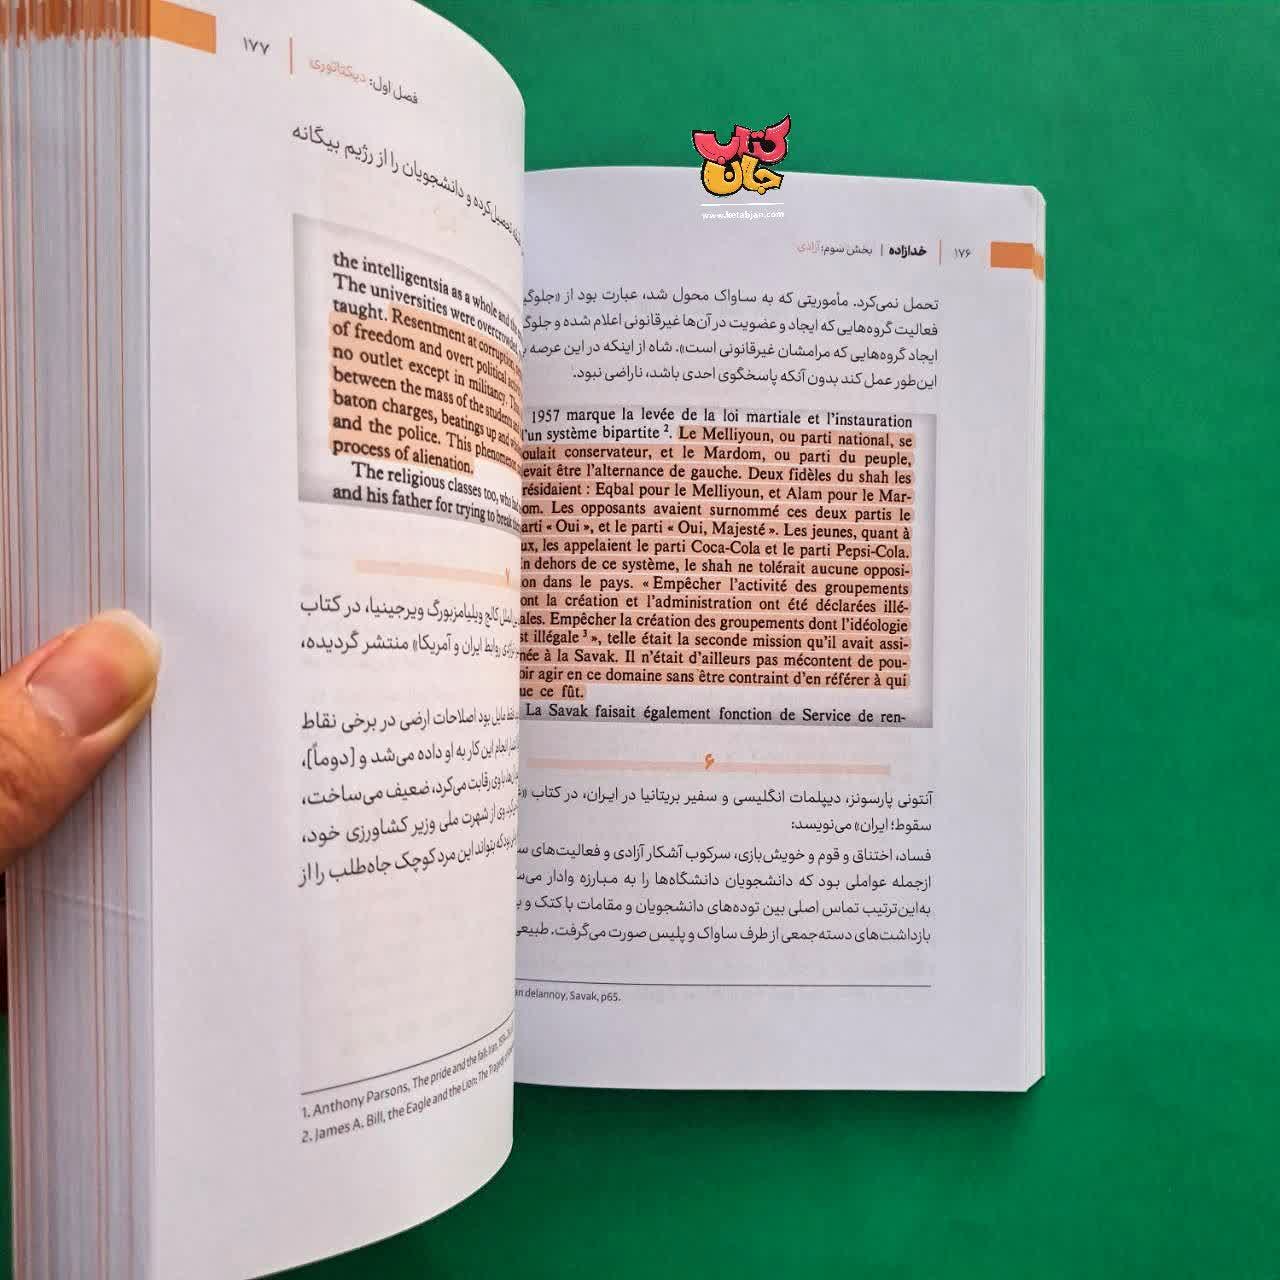 کتاب
جان
www.ketabjan.com
۱۷۶ | خدازاده | بخش سوم: آزادی
تحمل نمی‌کرد. مأموریتی که به ساواک محول شد، عبارت بود از «جلوگیـ
فعالیت گروه‌هایی که ایجاد و عضویت در آن‌ها غیرقانونی اعلام شده و جلوگـ
ایجاد گروه‌هایی که مرامشان غیرقانونی است». شاه از اینکه در این عرصه
این‌طور عمل کند بدون آنکه پاسخگوی احدی باشد، ناراضی نبود.
1957 marque la levée de la loi martiale et l'instauration
'un système bipartite ². Le Melliyoun, ou parti national, se
oulait conservateur, et le Mardom, ou parti du peuple,
evait être l'alternance de gauche. Deux fidèles du shah les
résidaient : Eqbal pour le Melliyoun, et Alam pour le Mar-
om. Les opposants avaient surnommé ces deux partis le
arti « Oui », et le parti « Oui, Majesté ». Les jeunes, quant à
ux, les appelaient le parti Coca-Cola et le parti Pepsi-Cola.
n dehors de ce système, le shah ne tolérait aucune opposi-
on dans le pays. « Empêcher l'activité des groupements
ont la création et l'administration ont été déclarées illé-
ales. Empêcher la création des groupements dont l'idéologie
st illégale ³ », telle était la seconde mission qu'il avait assi-
née à la Savak. Il n'était d'ailleurs pas mécontent de pou-
oir agir en ce domaine sans être contraint d'en référer à qui
ue ce fût.
La Savak faisait également fonction de Service de ren-
۶
آنتونی پارسونز، دیپلمات انگلیسی و سفیر بریتانیا در ایران، در کتاب
سقوط؛ ایران» می‌نویسد:
فساد، اختناق و قوم و خویش‌بازی، سرکوب آشکار آزادی و فعالیت‌های
ازجمله عواملی بود که دانشجویان دانشگاه‌ها را به مبارزه وادار
به‌این‌ترتیب تماس اصلی بین توده‌های دانشجویان و مقامات با کتک و
بازداشت‌های دسته‌جمعی از طرف ساواک و پلیس صورت می‌گرفت.
an delannoy, Savak, p65.
فصل اول: دیکتاتوری | ۱۷۷
تحصیل‌کرده و دانشجویان را از رژیم بیگانه
the intelligentsia as a whole and
The universities were overcrowded
taught. Resentment at corruption,
of freedom and overt political
no outlet except in militancy.
between the mass of the students
baton charges, beatings up and
and the police. This phenomenon
process of alienation.
The religious classes too, who had
and his father for trying to break
۷
کالج ویلیامزبورگ ویرجینیا، در کتاب
روابط ایران و آمریکا» منتشر گردیده،
فقط مایل بود اصلاحات ارضی در برخی نقاط
انجام این کار به او داده می‌شد و [دوماً]،
با وی رقابت می‌کرد، ضعیف می‌ساخت،
وی از شهرت ملی وزیر کشاورزی خود،
بود که بتواند این مرد کوچک جاه‌طلب را از
1. Anthony Parsons, The pride and the fall: Iran,
2. James A. Bill, the Eagle and the Lion: The Tragedy